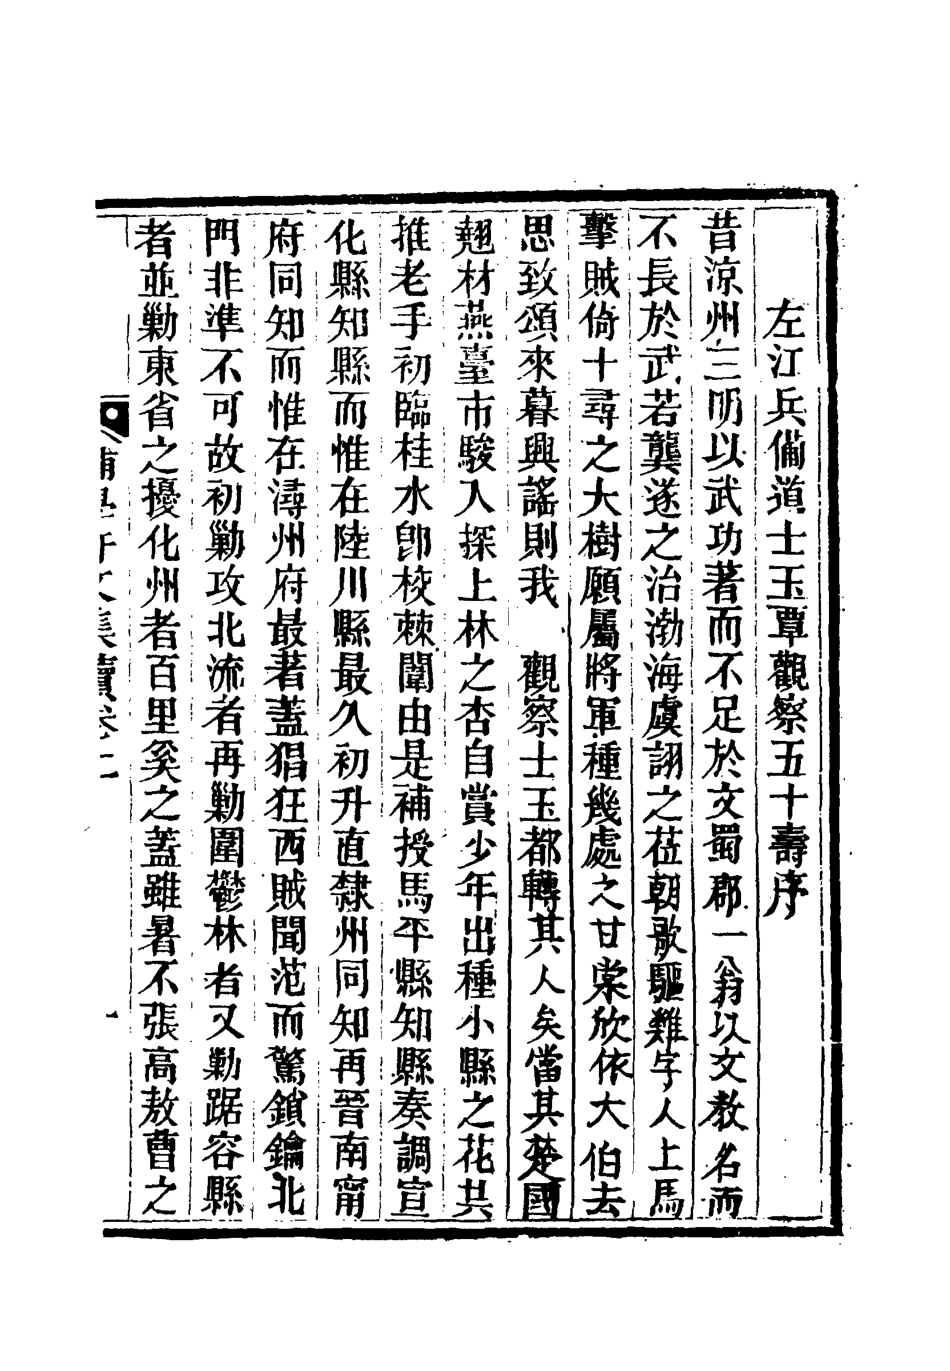 左江兵備道士玉覃觀察五十壽序
昔涼州三明以武功著而不足於文蜀郡一翁以文教名而
不長於武若龔遂之治渤海虞詡之莅朝歌驅雞字人上馬
擊賊倚十尋之大樹願屬將軍種幾處之甘棠欣依大伯去
思致頌來暮興謠則我　觀察士玉都轉其人矣當其楚國
翹材燕臺市駿入探上林之杏自賞少年出種小縣之花共
推老手初臨桂水卽校棘闈由是補授馬平縣知縣奏調宣
化縣知縣而惟在陸川縣最久初升直隸州同知再晉南甯
府同知而惟在潯州府最著蓋猖狂西賊聞范而驚鎖鑰北
門非準不可故初勦攻北流者再勦圍鬱林者又勦踞容縣
者並勦東省之擾化州者百里奚之蓋雖暑不張高敖曹之
文集續卷十二
一